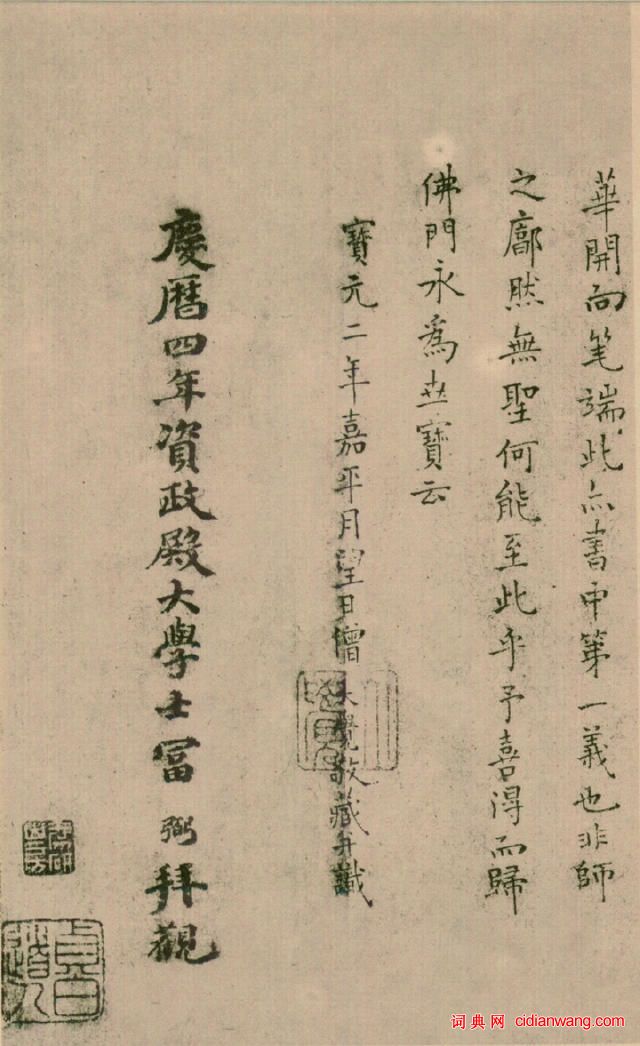 華開向笔端此亦書中第一義也非師
之廓然無聖何能至此乎予喜得而歸
佛門永為世寶云
寶元二年嘉平月望日僧大覺敬藏并識
慶曆四年資政殿大學士富弼拜觀
词典网 cidianwang.com